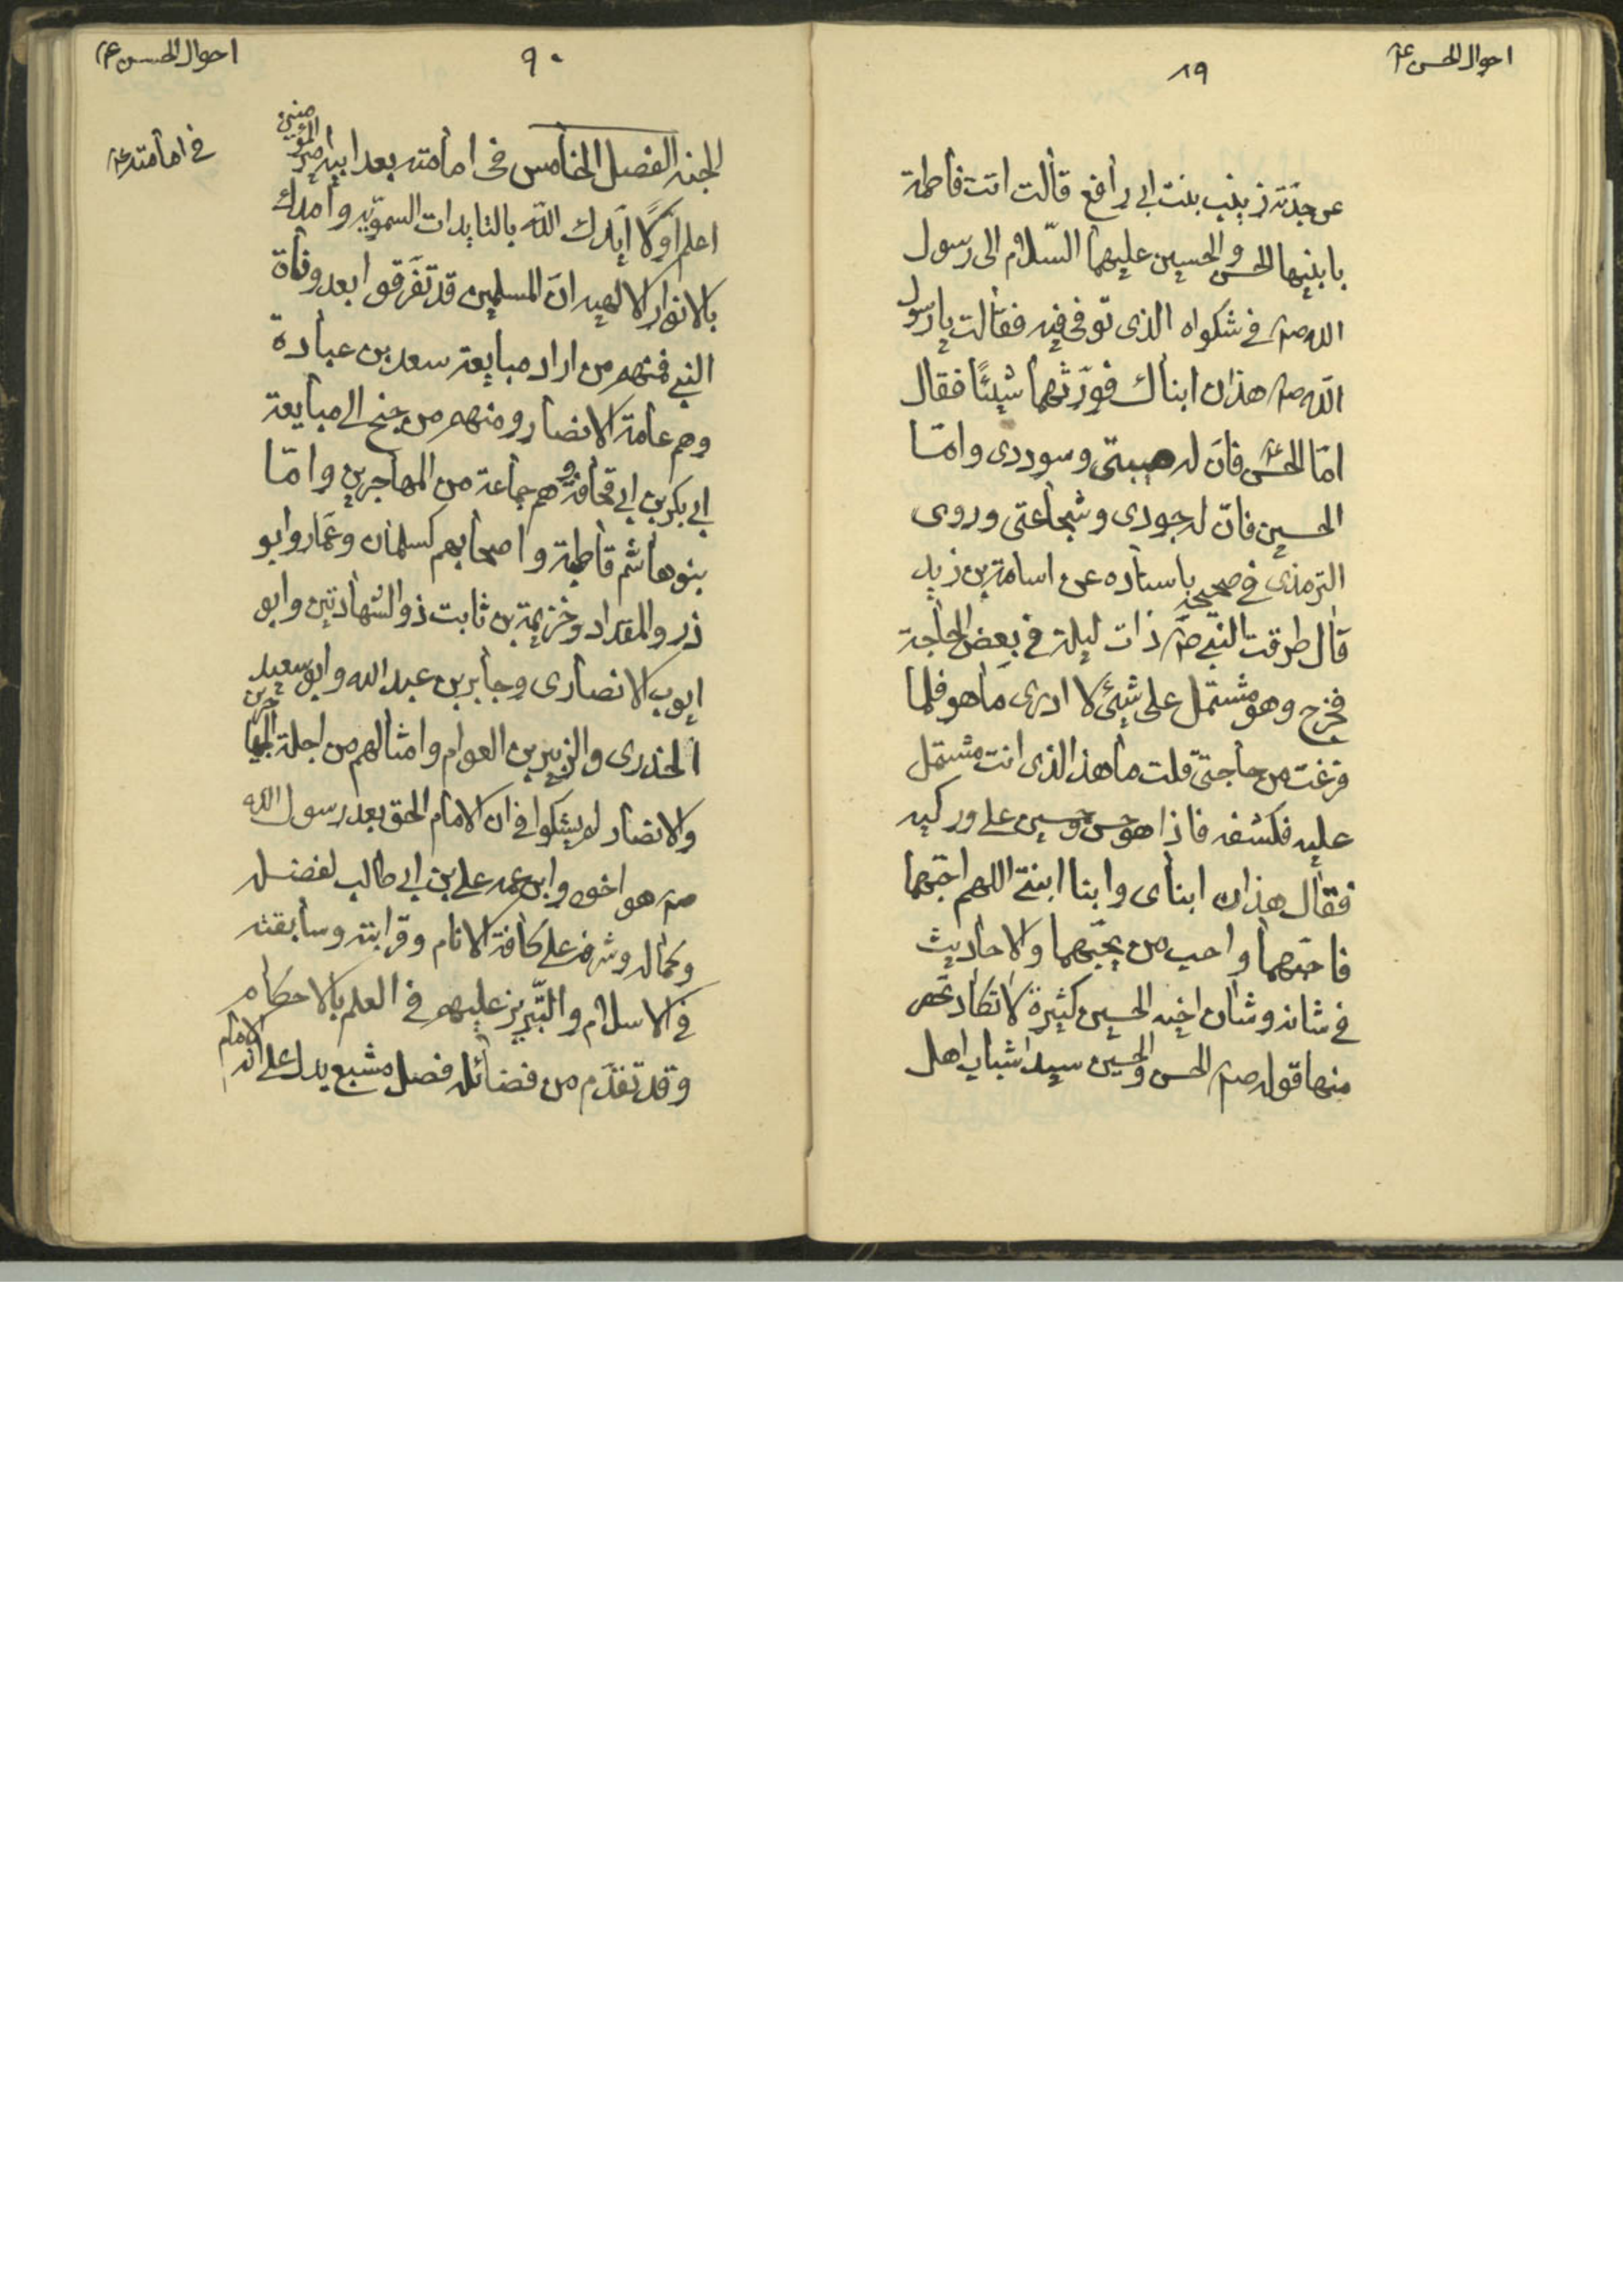 احوال الحسن ع
٨٩
عن جدّته زينب بنت ابي رافع قالت اتت فاطمة
بابنيها الحسن والحسين عليهما السّلام الى رسول
الله صم في شكواه الذى توفى فيه فقالت يا رسول
الله صم هذان ابناك فورّثهما شيئًا فقال
امّا الحسن ع فانّ له هيبتى وسوددى وامّا
الحسين فانّ له جودى وشجاعتى وروى
الترمذى في صحيحه باسناده عن اسامة بن زيد
قال طرقت النبي صم ذات ليلة في بعض الحاجة
فخرج وهو مشتمل على شيئ لا ادرى ما هو فلما
فرغت من حاجتى قلت ما هذا الذى انت مشتمل
عليه فكشفه فاذا هو حسن وحسين على وركيه
فقال هذان ابناى وابنا ابنتي اللهم احبّهما
فاحبّهما واحب من يحبّهما والاحاديث
في شانه وشان اخيه الحسين كثيرة لا تكاد تحص
منها قوله صم الحسن والحسين سيدا شباب اهل
احوال الحسن ع
٩٠
الجنه الفصل الخامس فى امامته بعد ابيه امير المؤمنين
في امامته ع
اعلم اوّلًا ايّدك الله بالتايدات السمويّه وامدك
بالانوار الالهيه انّ المسلمين قد تفرّقوا بعد وفاة
النبي فمنهم من اراد مبايعة سعد بن عبادة
وهم عامة الانصار ومنهم من جنح الى مبايعة
ابي بكر بن ابي قحافة وهم جماعة من المهاجرين وامّا
بنو هاشم قاطبة واصحابهم كسلمان وعمّار وابو
ذر والمقداد وخزيمة بن ثابت ذو الشهادتين وابو
ايوب الانصارى وجابر بن عبد الله وابو سعيد
الخدرى والزبير بن العوام وامثالهم من اجلة المهاجرين
والانصار لم يشكوا في ان الامام الحق بعد رسول الله
صم هو اخوه وابن عمه علي بن ابي طالب لفضله
وكماله وشرفه على كافة الانام وقرابته وسابقته
في الاسلام والتّبريز عليهم في العلم بالاحكام
وقد تقدّم من فضائله فصل مشبع يدل على انه الامام